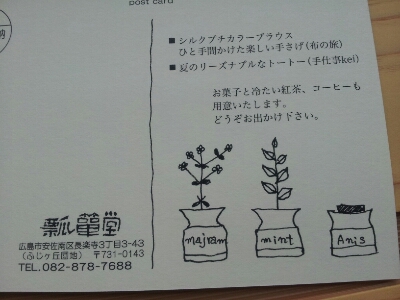 post card
■ シルクプチカラーブラウス
ひと手間かけた楽しい手さげ(布の旅)
■ 夏のリーズナブルなトートー(手仕事kei)
お菓子と冷たい紅茶、コーヒーも
用意いたします。
どうぞお出かけ下さい。
majram
mint
Anis
瓢箪堂
広島市安佐南区長楽寺3丁目3-43
(ふじヶ丘団地) 〒731-0143
TEL.082-878-7688